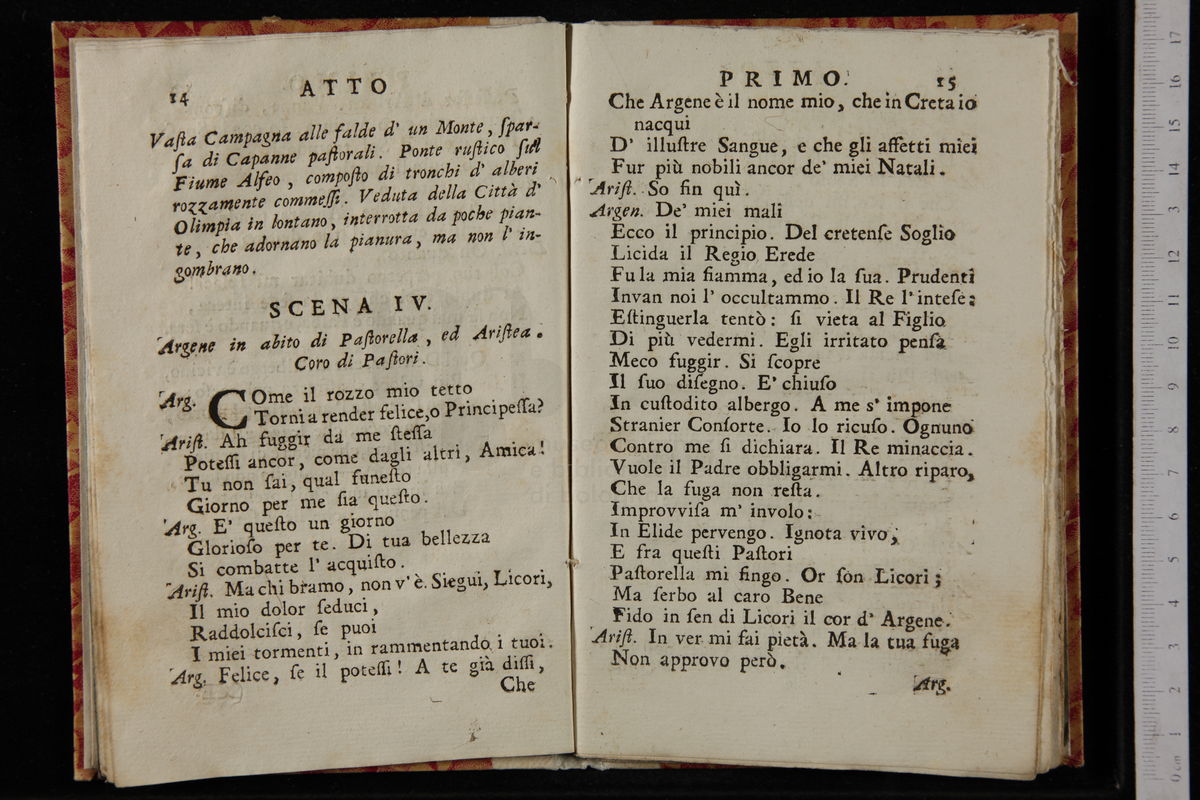 14
ATTO
Vaſta Campagna alle falde d' un Monte, ſpar-
ſa di Capanne paſtorali. Ponte ruſtico ſul
Fiume Alfeo, compoſto di tronchi d' alberi
rozzamente commeſſi. Veduta della Città d'
Olimpia in lontano, interrotta da poche pian-
te, che adornano la pianura, ma non l' in-
gombrano.
SCENA IV.
Argene in abito di Paſtorella, ed Ariſtea.
Coro di Paſtori.
Arg. COme il rozzo mio tetto
Torni a render felice, o Principeſſa?
Ariſt. Ah fuggir da me ſteſſa
Poteſſi ancor, come dagli altri, Amica!
Tu non ſai, qual funeſto
Giorno per me ſia queſto.
Arg. E' queſto un giorno
Glorioſo per te. Di tua bellezza
Si combatte l' acquiſto.
Ariſt. Ma chi bramo, non v' è. Siegui, Licori,
Il mio dolor ſeduci,
Raddolciſci, ſe puoi
I miei tormenti, in rammentando i tuoi.
Arg. Felice, ſe il poteſſi! A te già diſſi,
Che
PRIMO.
15
Che Argene è il nome mio, che in Creta io
nacqui
D' illuſtre Sangue, e che gli affetti miei
Fur più nobili ancor de' miei Natali.
Ariſt. So fin quì.
Argen. De' miei mali
Ecco il principio. Del cretenſe Soglio
Licida il Regio Erede
Fu la mia fiamma, ed io la ſua. Prudenti
Invan noi l' occultammo. Il Re l' inteſe:
Eſtinguerla tentò: ſi vieta al Figlio
Di più vedermi. Egli irritato penſa
Meco fuggir. Si ſcopre
Il ſuo diſegno. E' chiuſo
In cuſtodito albergo. A me s' impone
Stranier Conſorte. Io lo ricuſo. Ognuno
Contro me ſi dichiara. Il Re minaccia.
Vuole il Padre obbligarmi. Altro riparo,
Che la fuga non reſta.
Improvviſa m' involo:
In Elide pervengo. Ignota vivo,
E fra queſti Paſtori
Paſtorella mi fingo. Or ſon Licori;
Ma ſerbo al caro Bene
Fido in ſen di Licori il cor d' Argene.
Ariſt. In ver mi fai pietà. Ma la tua fuga
Non approvo però.
Arg.
0 cm 1 2 3 4 5 6 7 8 9 10 11 12 13 14 15 16 17